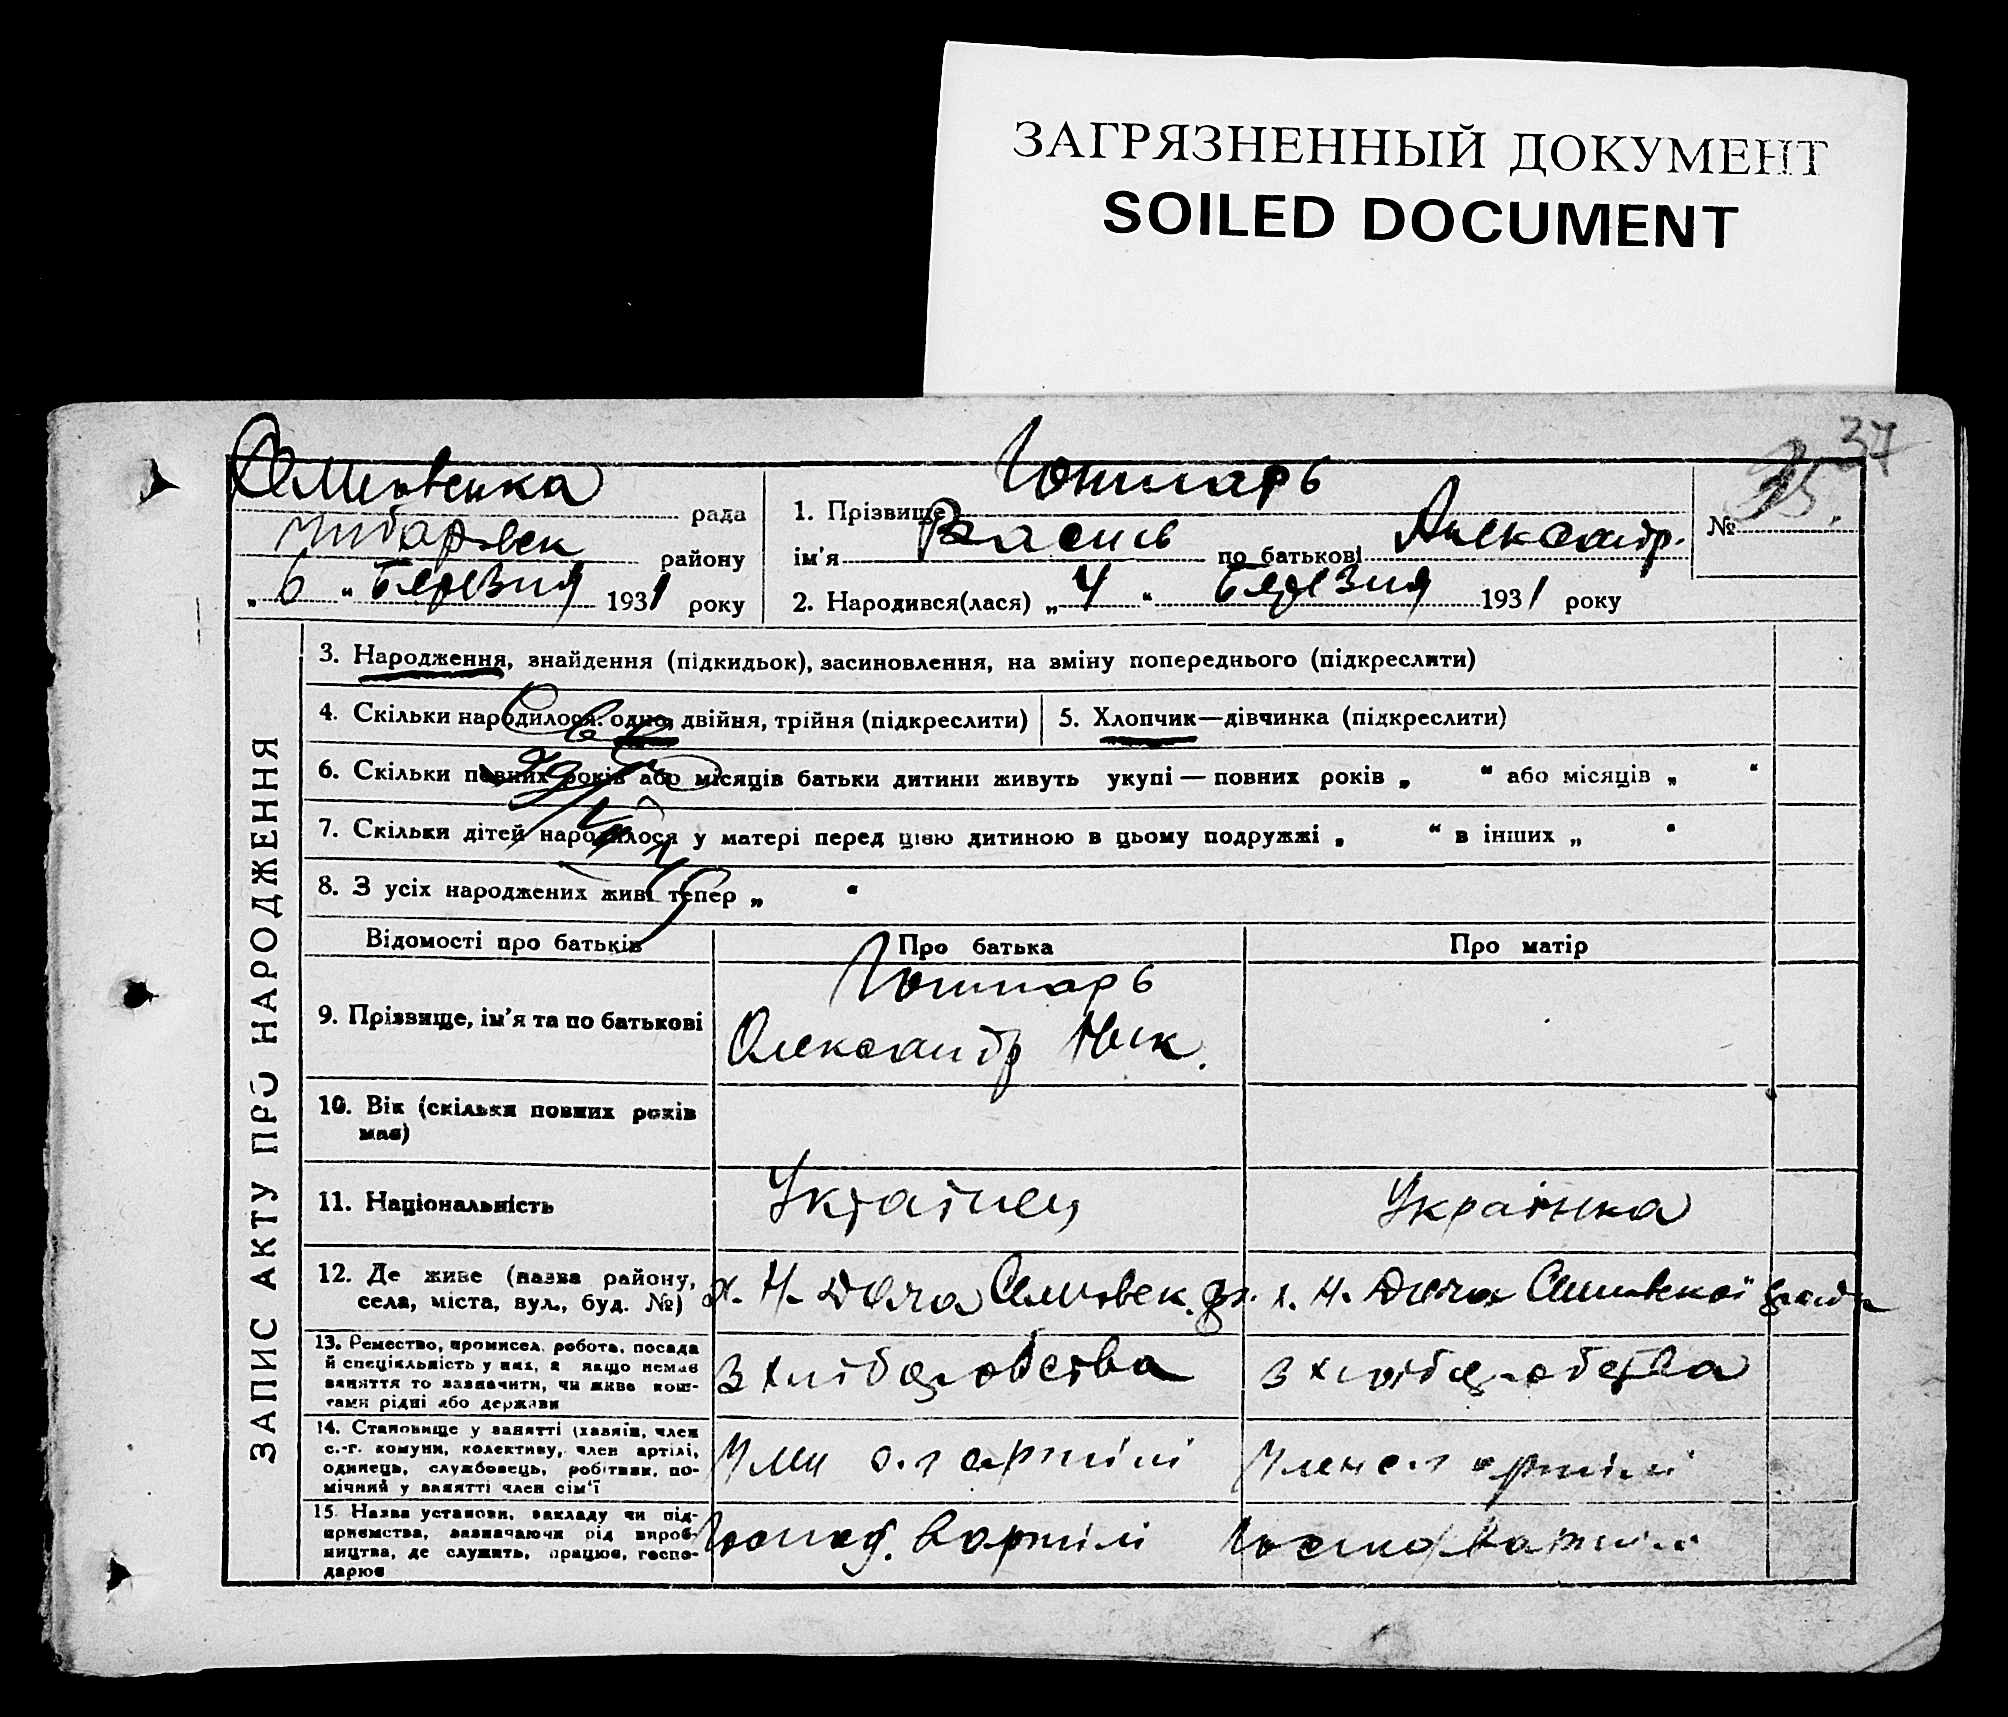 ЗАГРЯЗНЕННЫЙ ДОКУМЕНТ
SOILED DOCUMENT
37
35.
рада
району
„ 6 “ Березня 1931 року
1. Прізвище
ім'я Василь по батькові Александр.
2. Народився(лася) „ 4 “ Березня 1931 року
№
ЗАПИС АКТУ ПРО НАРОДЖЕННЯ
3. Народження, знайдення (підкидьок), засиновлення, на зміну попереднього (підкреслити)
4. Скільки народилося: одно, двійня, трійня (підкреслити)
5. Хлопчик—дівчинка (підкреслити)
6. Скільки повних років або місяців батьки дитини живуть укупі — повних років „ “ або місяців „ “
7. Скільки дітей народилося у матері перед цією дитиною в цьому подружжі „ “ в інших „ “
8. З усіх народжених живі тепер „ “
Відомості про батьків
Про батька
Про матір
9. Прізвище, ім'я та по батькові
Олександр Ник.
10. Вік (скільки повних років
має)
11. Національність
Українец
Українка
12. Де живе (назва району,
села, міста, вул., буд. №)
х. Н. Дача
х. Н. Дача
13. Ремество, промисел, робота, посада
й спеціяльність у них, а якщо немає
заняття то зазначити, чи живе кош-
тами рідні або держави
З хліборобства
З хліборобства
14. Становище у занятті (хазяїн, член
с.-г. комуни, колективу, член артілі,
одинець, службовець, робітник, по-
мічний у занятті член сім'ї
Член с.г артілі
Член с.г артілі
15. Назва установи, закладу чи під-
приємства, зазначаючи рід вироб-
ництва, де служить, працює, госпо-
дарює
Господ. в артілі
Господ. в артілі